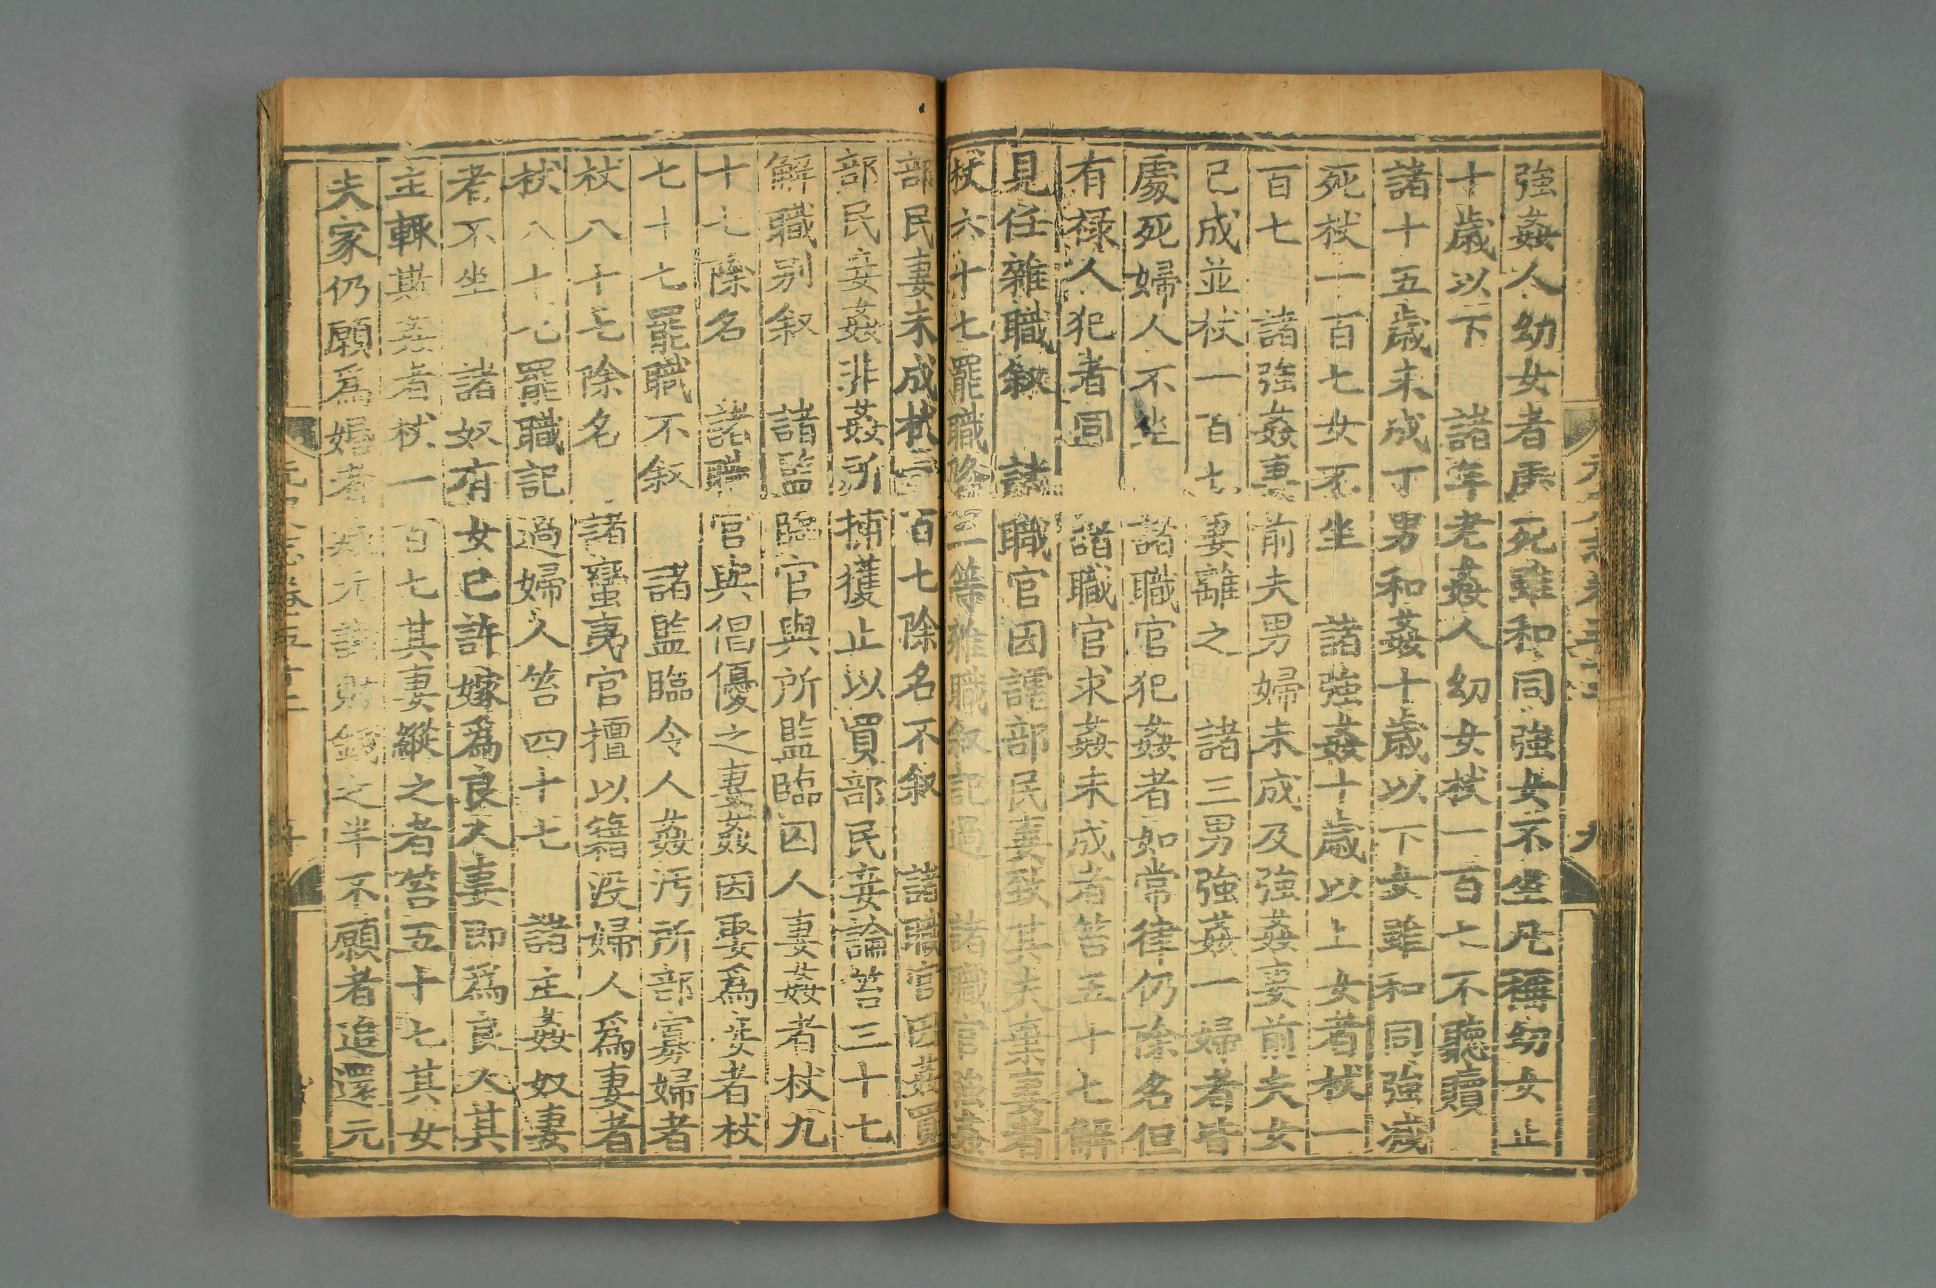 強姦人幼女者處死雖和同強女不坐凡稱幼女止
十歲以下　諸年老姦人幼女杖一百七不聽贖
諸十五歲未成丁男和姦十歲以下女雖和同強減
死杖一百七女不坐　諸強姦十歲以上女者杖一
百七　諸強姦妻前夫男婦未成及強姦妻前夫女
已成並杖一百七妻離之　諸三男強姦一婦者皆
處死婦人不坐　諸職官犯姦者如常律仍除名但
有祿人犯者同　諸職官求姦未成者笞五十七解
見任雜職敘　諸職官因謔部民妻致其夫棄妻者
杖六十七罷職降二等雜職敘記過　諸職官強姦
部民妻未成杖一百七除名不敘　諸職官因姦買
部民妾姦非姦所捕獲止以買部民妾論笞三十七
解職別敘　諸監臨官與所監臨囚人妻姦者杖九
十七除名　諸職官與倡優之妻姦因娶為妾者杖
七十七罷職不敘　諸監臨令人姦污所部寡婦者
杖八十七除名　諸蠻夷官擅以籍沒婦人為妻者
杖八十七罷職記過婦人笞四十七　諸主姦奴妻
者不坐　諸奴有女已許嫁為良人妻即為良人其
主輒欺姦者杖一百七其妻縱之者笞五十七其女
夫家仍願為婚者減元議財錢之半不願者追還元